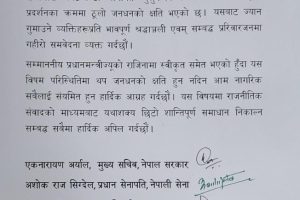 प्रदर्शनका क्रममा ठूलो जनधनको क्षति भएको छ । यसबाट ज्यान
गुमाउने व्यक्तिहरूप्रति भावपूर्ण श्रद्धाञ्जली एवम् सम्बद्ध परिवारजनमा
गहिरो समवेदना व्यक्त गर्दछौं ।
सम्माननीय प्रधानमन्त्रीज्यूको राजिनामा स्वीकृत समेत भएको हुँदा यस
विषम परिस्थितिमा थप जनधनको क्षति हुन नदिन आम नागरिक
सबैलाई संयमित हुन हार्दिक आग्रह गर्दछौं । यस विषयमा राजनीतिक
संवादको माध्यमबाट यथाशक्य छिटो शान्तिपूर्ण समाधान निकाल्न
सम्बद्ध सबैमा हार्दिक अपिल गर्दछौं ।
एकनारायण अर्याल, मुख्य सचिव, नेपाल सरकार
अशोक राज सिग्देल, प्रधान सेनापति, नेपाली सेना